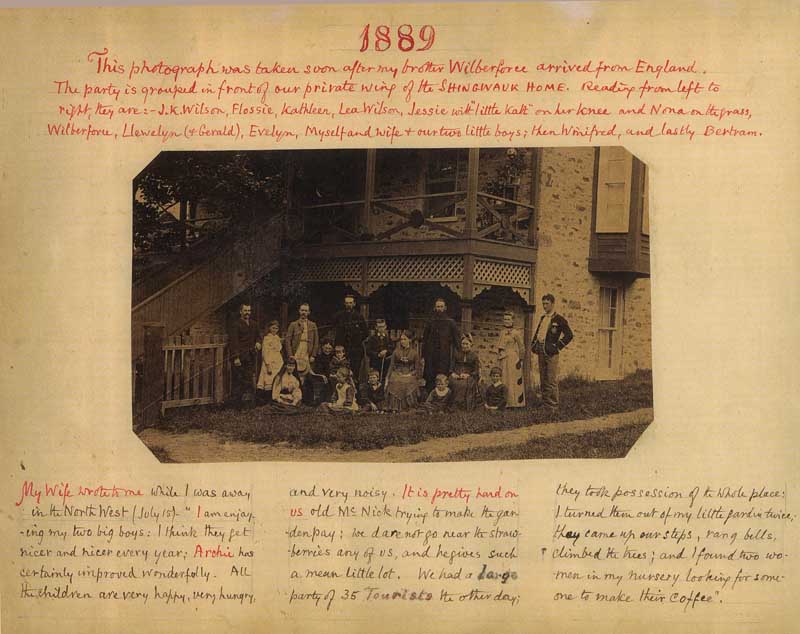 1889
This photograph was taken soon after my brother Wilberforce arrived from England.
The party is grouped in front of our private wing of the SHINGWAUK HOME. Reading from left to
right, they are:- J.K. Wilson, Flossie, Kathleen, Lea Wilson, Jessie with "little Kate" on her knee and Nona on the grass,
Wilberforce, Llewelyn (& Gerald), Evelyn, Myself and wife & our two little boys; then Winifred, and lastly Bertram.
My Wife wrote to me while I was away
in the North West (July 15)- "I am enjoy-
-ing my two big boys: I think they get
nicer and nicer every year; Archie has
certainly improved wonderfully. All
the children are very happy, very hungry,
and very noisy. It is pretty hard on
us old McNick trying to make the gar-
den pay; we dare not go near the straw-
berries any of us, and he gives such
a mean little lot. We had a large
party of 35 Tourists the other day;
they took possession of the whole place:
I turned them out of my little garden twice,
they came up our steps, rang bells,
climbed the trees; and I found two wo-
men in my nursery looking for some-
one to make their coffee".